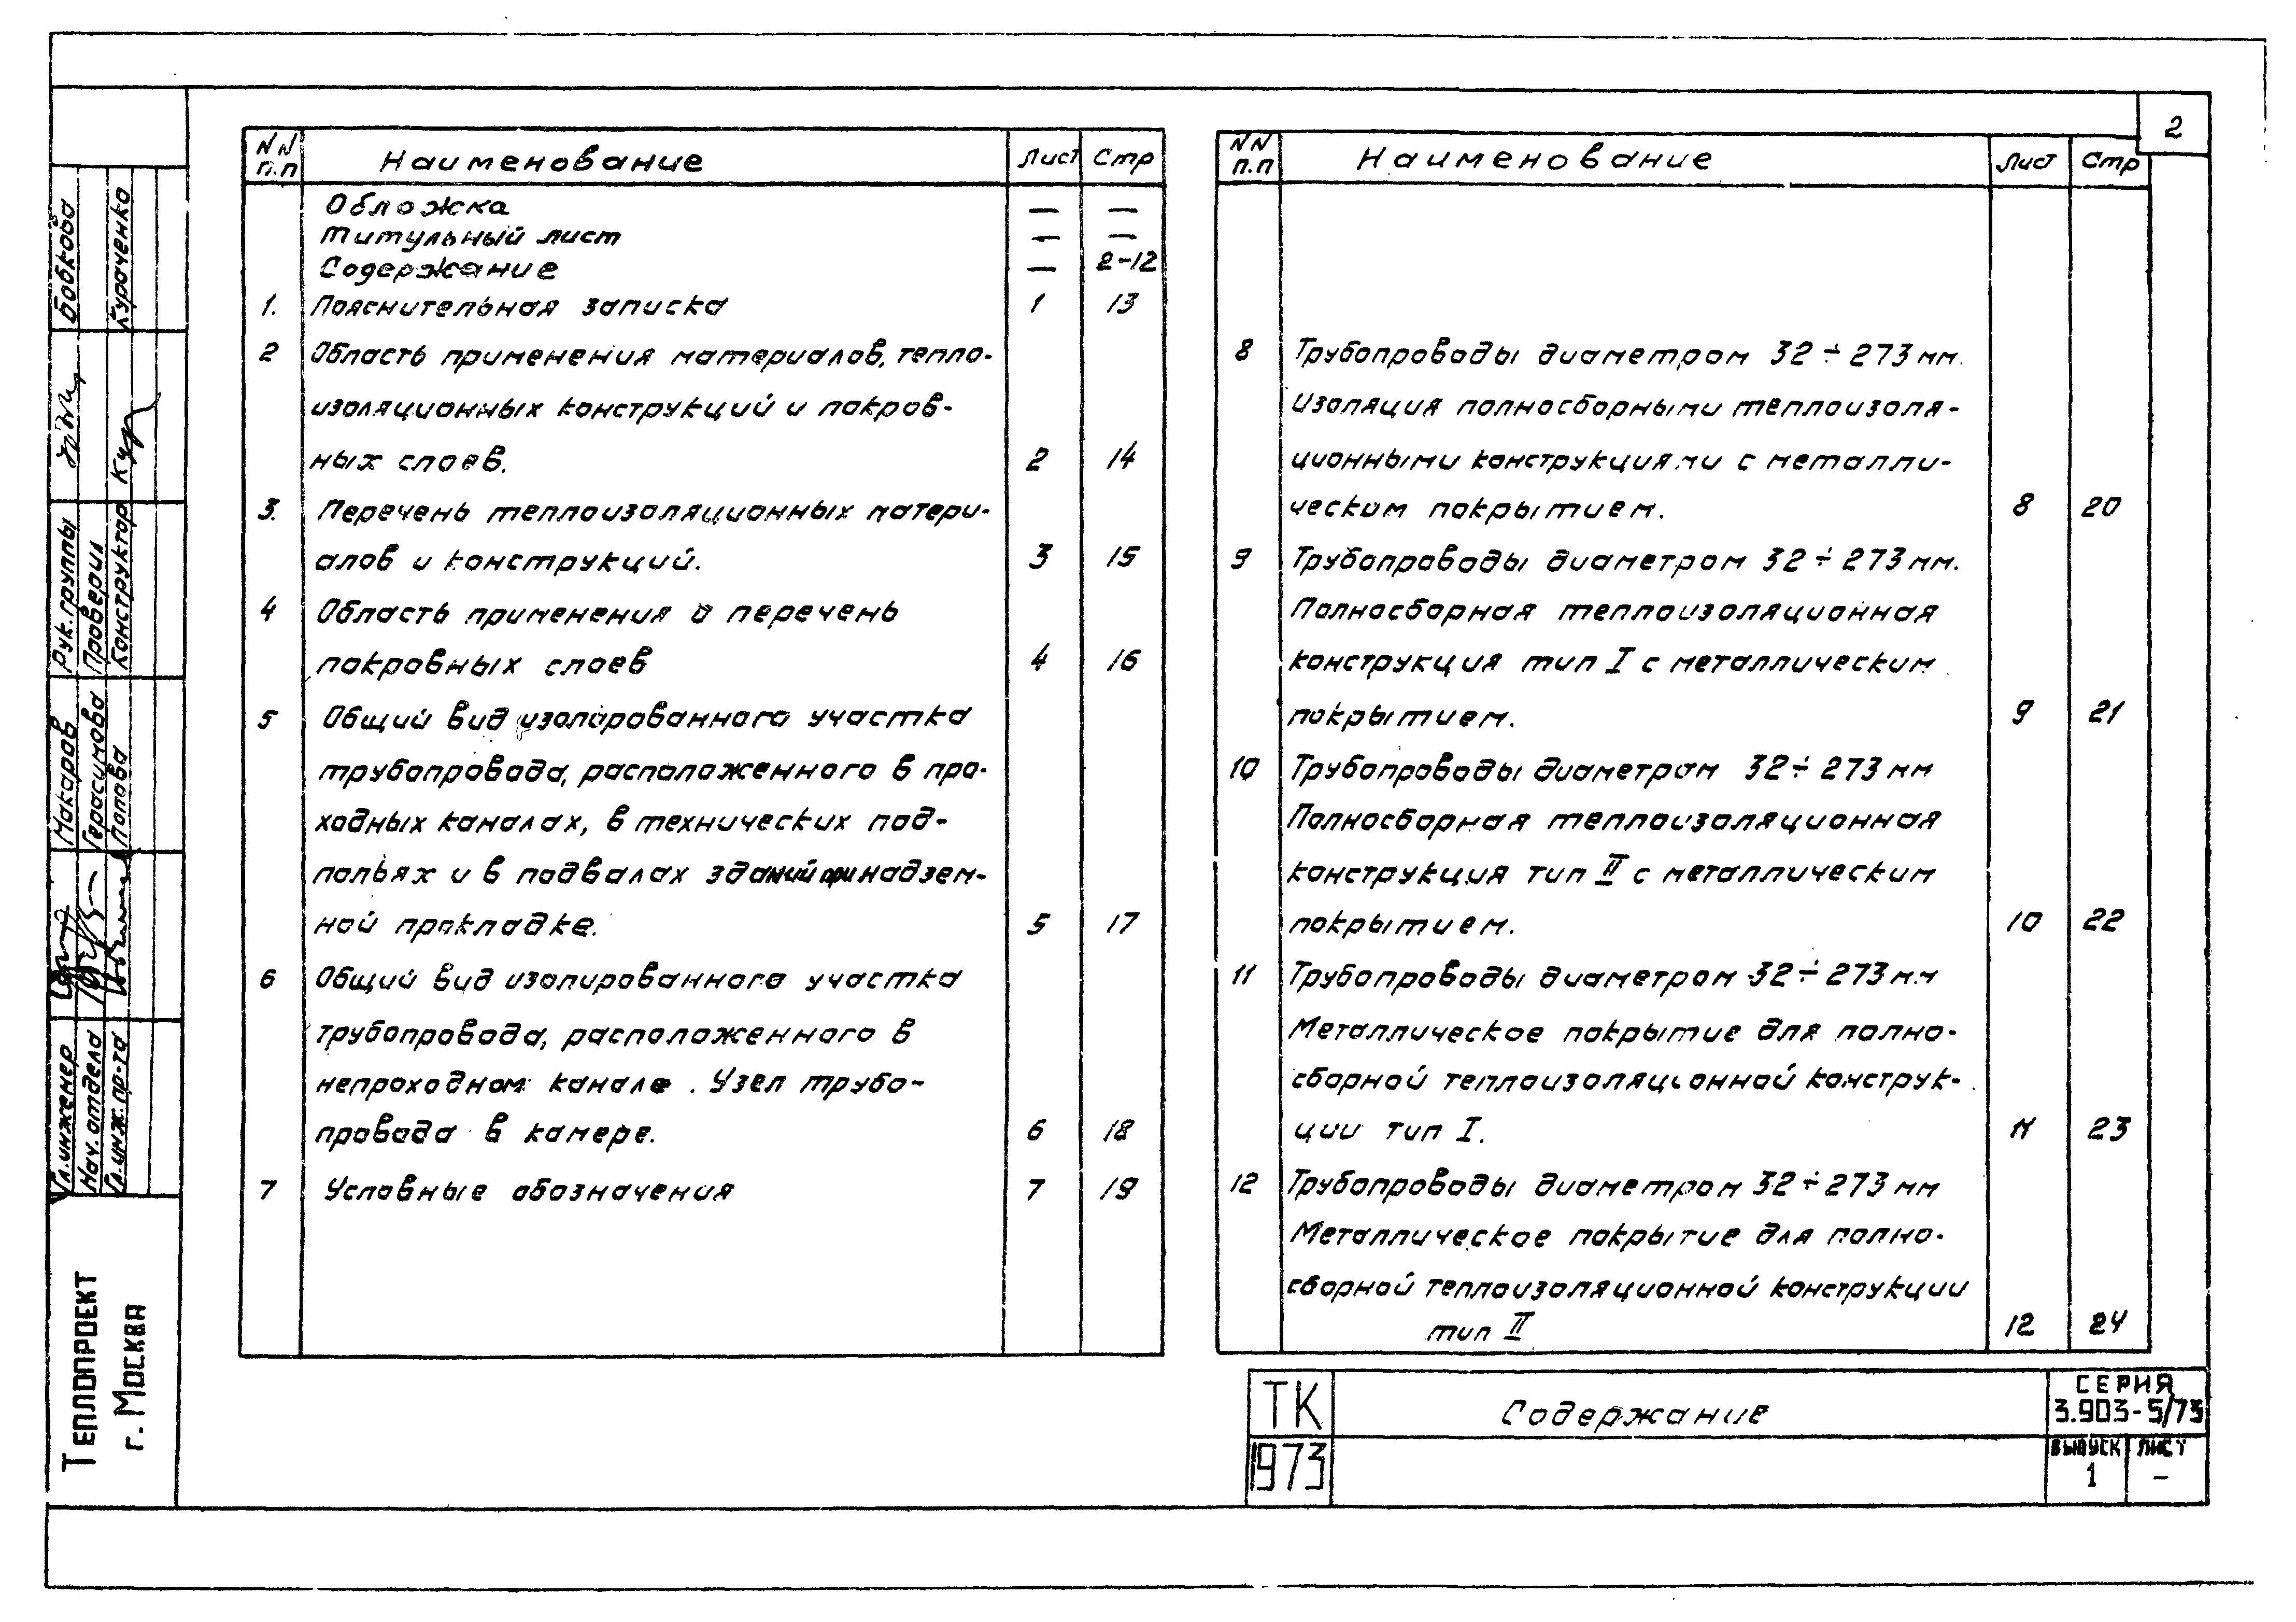 2
NN п.п Наименование Лист Стр
Обложка — —
Титульный лист — —
Содержание — 2-12
1. Пояснительная записка 1 13
2 Область применения материалов, тепло-
изоляционных конструкций и покров-
ных слоев. 2 14
3. Перечень теплоизоляционных матери-
алов и конструкций. 3 15
4 Область применения и перечень
покровных слоев 4 16
5 Общий вид изолированного участка
трубопровода, расположенного в про-
ходных каналах, в технических под-
польях и в подвалах зданий при надзем-
ной прокладке. 5 17
6 Общий вид изолированного участка
трубопровода, расположенного в
непроходном канале. Узел трубо-
провода в камере. 6 18
7 Условные обозначения 7 19
NN п.п Наименование Лист Стр
8 Трубопроводы диаметром 32÷273 мм.
Изоляция полносборными теплоизоля-
ционными конструкциями с металли-
ческим покрытием. 8 20
9 Трубопроводы диаметром 32÷273 мм.
Полносборная теплоизоляционная
конструкция тип I с металлическим
покрытием. 9 21
10 Трубопроводы диаметром 32÷273 мм
Полносборная теплоизоляционная
конструкция тип II с металлическим
покрытием. 10 22
11 Трубопроводы диаметром 32÷273 мм
Металлическое покрытие для полно-
сборной теплоизоляционной конструк-
ции тип I. 11 23
12 Трубопроводы диаметром 32÷273 мм
Металлическое покрытие для полно-
сборной теплоизоляционной конструкции
тип II 12 24
ТК
1973
Содержание
СЕРИЯ
3.903-5/73
ВЫПУСК ЛИСТ
1 –
Теплопроект
г. Москва
Гл. инженер Макаров Рук. группы Бобкова
Нач. отдела Герасимова Проверил
Гл. инж. пр-та Попова Конструктор Кураченко